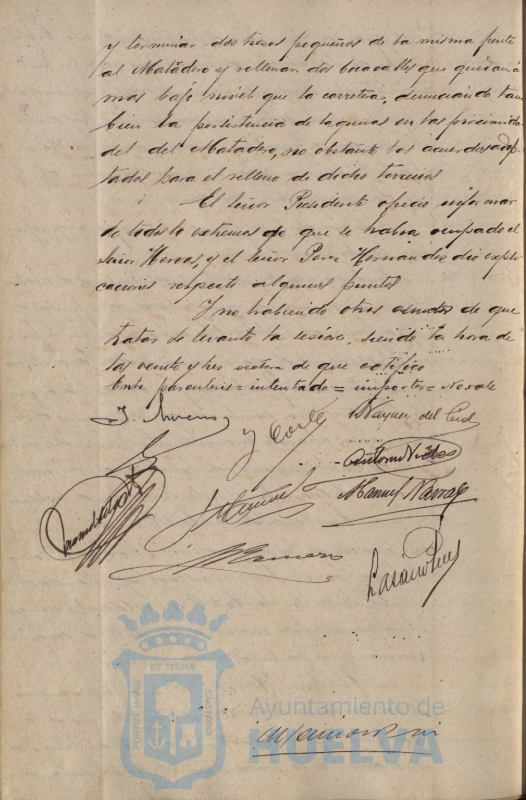 y terminar dos trozos pequeños de la misma frente
al Matadero y rellenar dos bocacalles que quedan á
mas bajo nivel que la carretera, denunciando tam
bien la persistencia de lagunas en las proximida
del del Matadero, no obstante los acuerdos adop-
tados para el relleno de dichos terrenos
El Señor Presidente ofreció informar
de todos lo estremos de que se habia ocupado el
Señor Hervas, y el Señor Perez Hernandez dió expli
caciones respecto algunos puntos
Y no habiendo otros asuntos de que
tratar se levantó la sesion, siendo la hora de
las veinte y tres de que certifico
Entre parentesis = intentado = importe = No vale
J. Y Cort
Vazquez del Cid
Antonio
Manuel Navarro
J.
J. Romero
Lazaro
PORTUS MARIS ET TERRÆ CUSTODIA
Ayuntamiento de
HUELVA